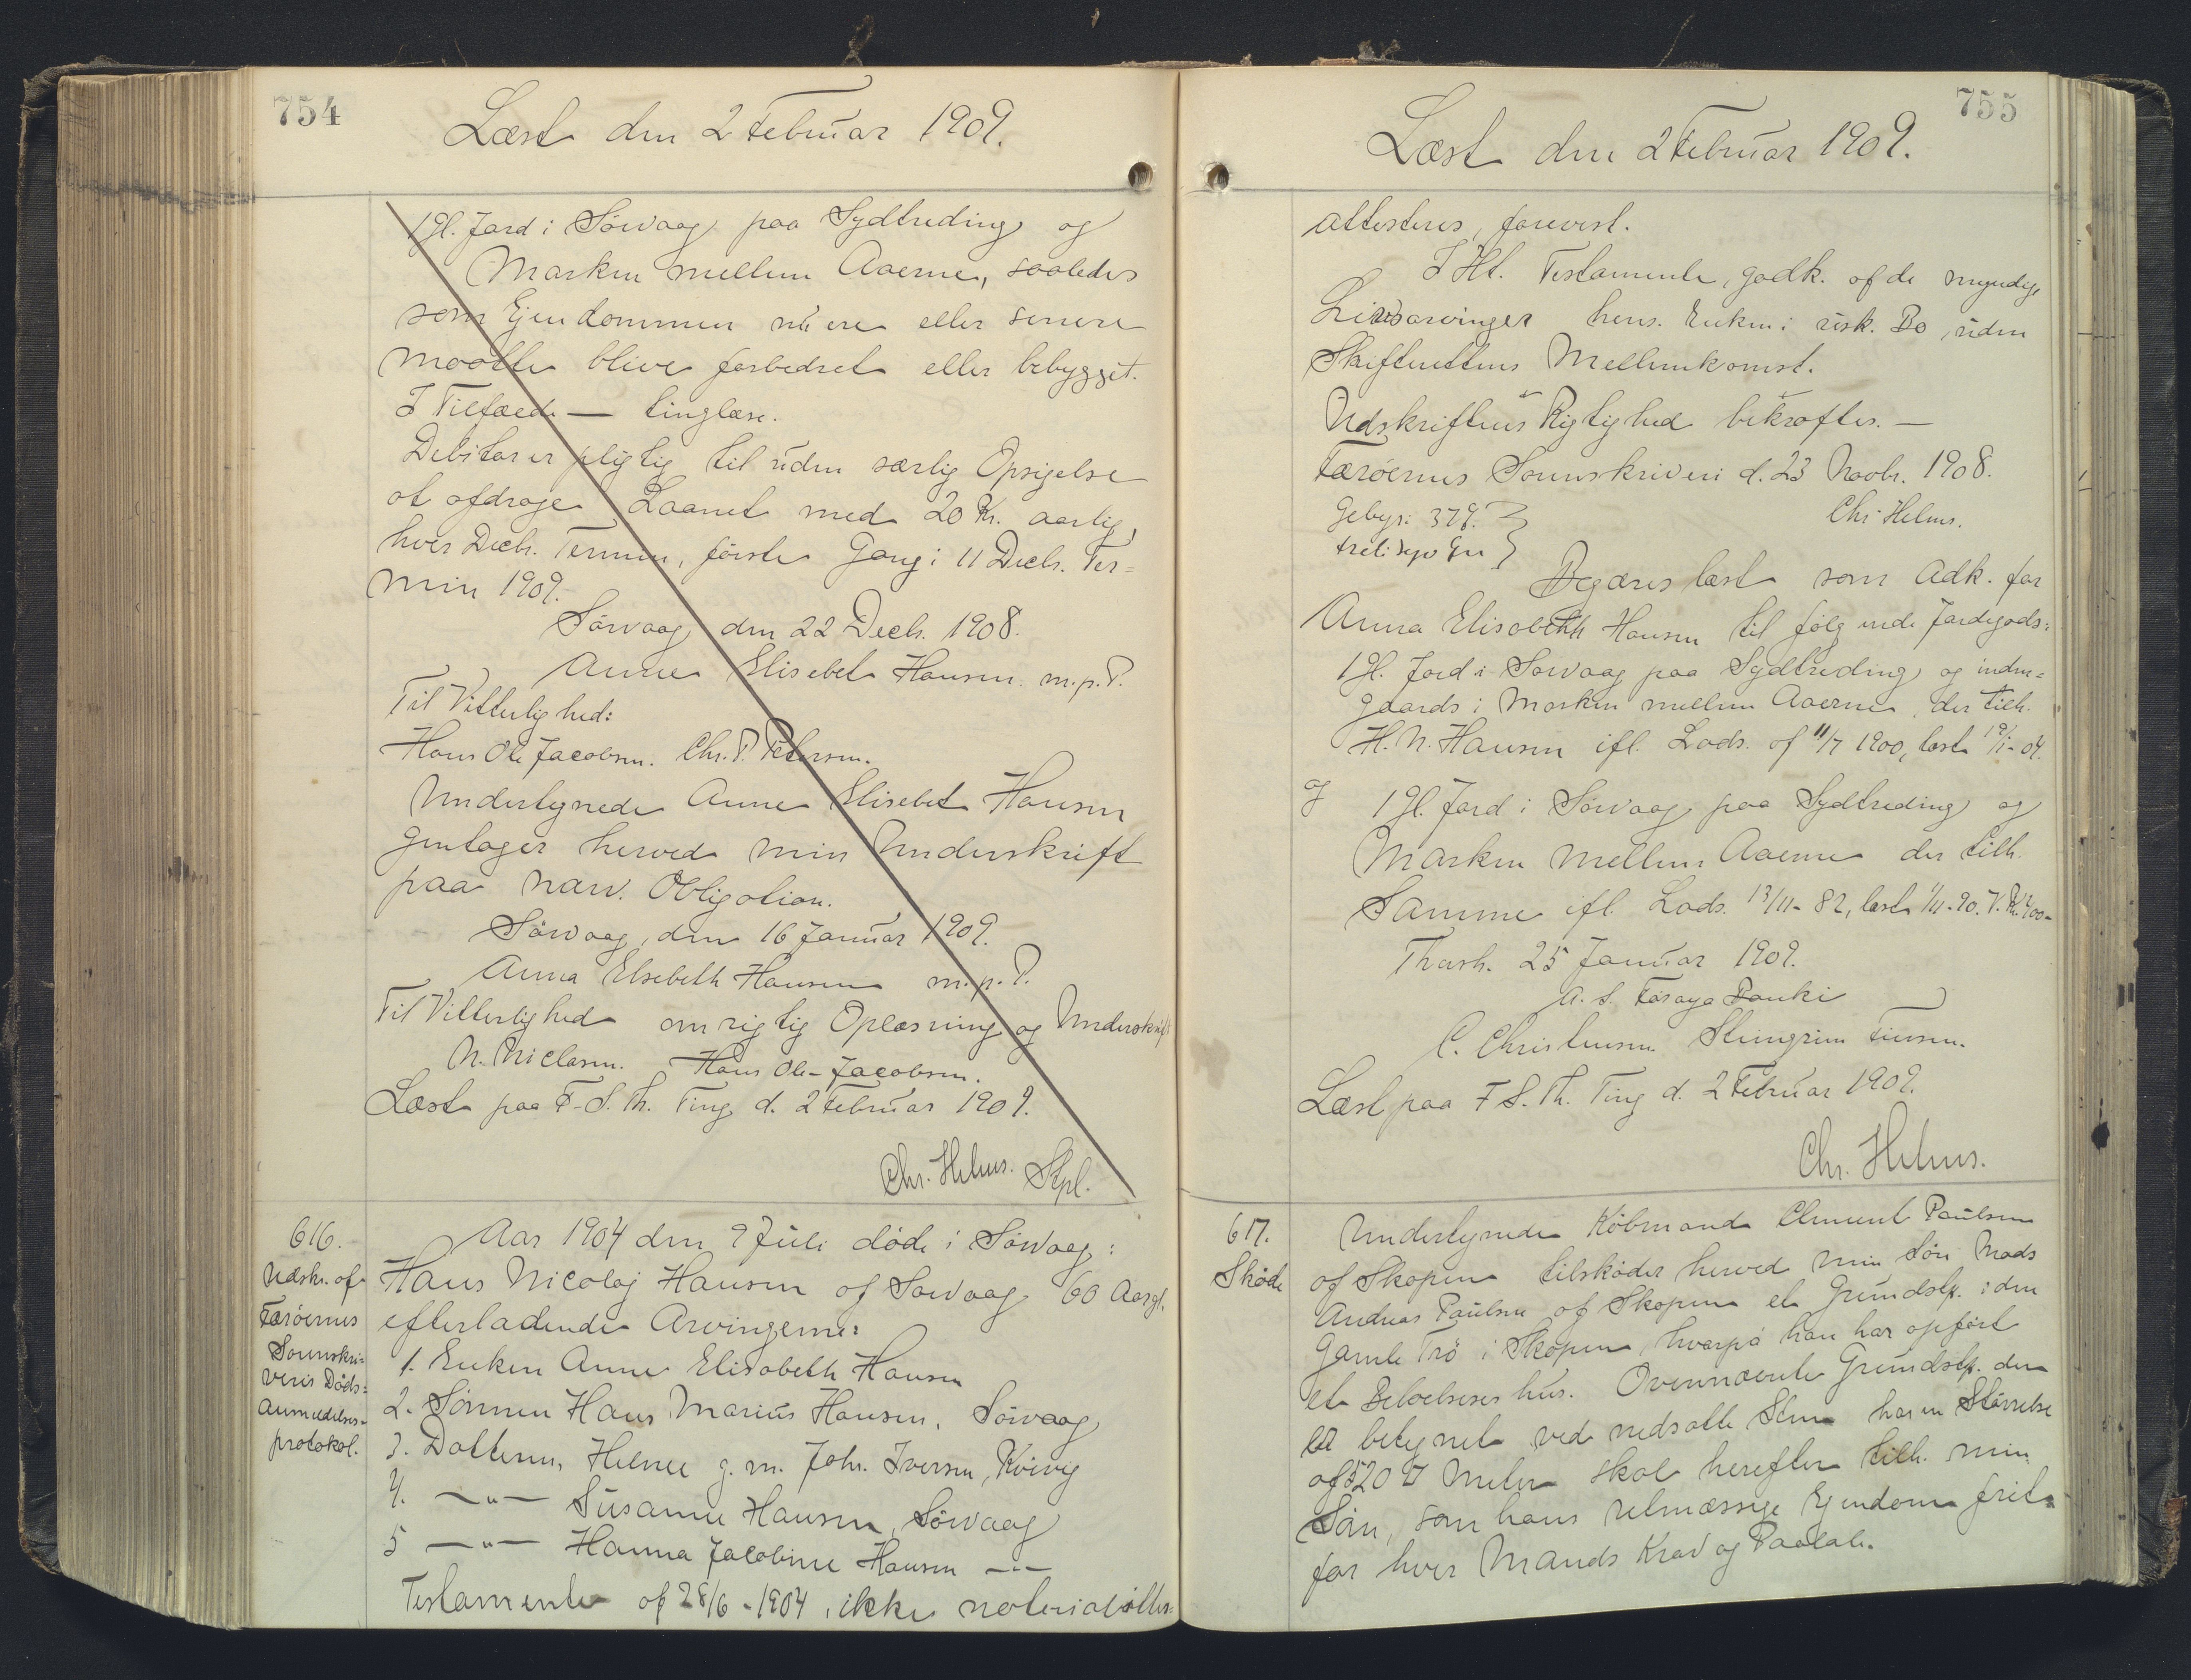 754
Læst den 2 Februar 1909.
1 Gl. Jord i Sörvaag paa Sydtreding og
Marken mellem Aaerne, saaledes
som Ejendommen nu ere eller senere
maatte blive forbedret eller bebygget.
I Tilfælde — tinglæse.
Debitor er pligtig til uden særlig Opsigelse
at afdrage Laanet med 20 Kr. aarlig,
hver Decb. Termin, förste Gang i 11 Decb. Ter=
min 1909.
Sörvaag, den 22 Decb. 1908.
Anne Elisebet Hansen m.p.P.
Til Vitterlighed:
Hans Ole Jacobsen. Chr. P. Petersen.
Undertegnede Anne Elisebet Hansen
gentager herved min Underskrift
paa nærv. Obligation.
Sörvaag, den 16 Januar 1909.
Anna Elsebeth Hansen m.p.P.
Til Vitterlighed om rigtig Oplæsning og Underskrift
N. Niclasen. Hans Ole Jacobsen.
Læst paa F. S. Th. Ting d. 2 Februar 1909.
Chr. Helms. Stpl.
616.
Udskr. af
Færöernes
Sorenskri=
veris Döds=
anmeldelses=
protokol.
Aar 1904 den 9 Juli döde i Sörvaag:
Hans Nicolaj Hansen af Sorvaag 60 Aar gl.
efterladende Arvingerne:
1. Enken Anne Elisabeth Hansen
2. Sönnen Hans Marius Hansen, Sörvaag
3. Datteren, Helene g. m. Johs. Iversen, Kvivig
4. —"— Susanne Hansen, Sörvaag
5 —"— Hanna Jacobine Hansen —"—
Testamente af 28/6 - 1904, ikke notarialiter
755
Læst den 2 Februar 1909.
attesteres, forevist.
I Ht. Testamente, godk. af de myndige
Livsarvinger hens. Enken i usk. Bo, uden
Skifterettens Mellemkomst.
Udskriftens Rigtighed bekræftes. —
Færöernes Sorenskriveri d. 23 Novbr. 1908.
Gebyr: 37 Ø. Chr Helms.
treti syv Øre
Begæres læst som Adk. for
Anna Elisabeth Hansen til fölgende Jordegods:
1 Gl. Jord i Sorvaag paa Sydtreding og inden=
gaards i Marken mellem Aaerne, der tilh.
H. N. Hansen ifl. Lods. af 11/7 1900, læst 19/1-04.
og 1 Gl. Jord i Sörvaag paa Sydtreding og
Marken mellem Aaerne der tilh.
Samme ifl. Lods. 13/11-82, læst
Thavh. 25 Januar 1909.
A. S. Föroya Banki
C. Christensen. Steingrim
Læst paa F S. Th. Ting d. 2 Februar 1909.
Chr. Helms.
617.
Sköde
Undertegnede Köbmand Clement Paulsen
af Skopen tilsköder herved min Sön Mads
Andreas Paulsen af Skopen et Grundstk. i den
gamle Trö i Skopen, hvorpå han har opfört
et Beboelseses hus. Ovennævnte Grundstk. der
er betegnet ved nedsatte Sten har en Störrelse
af 520 □ Meter skal herefter tilh. min
Sön, som hans retmæssige Ejendom frit
for hver Mands Krav og Paatale.